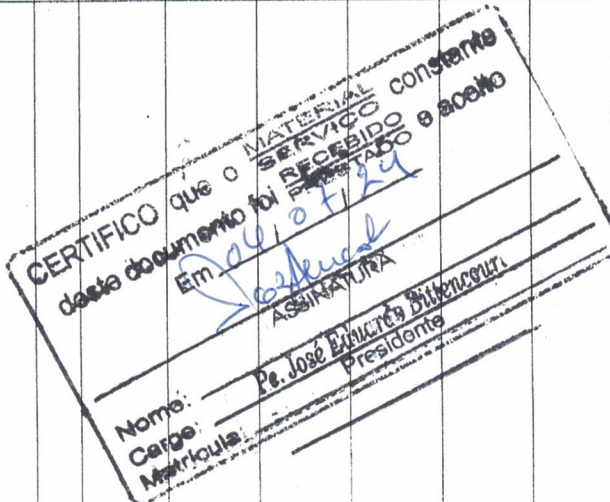 CERTIFICO que o MATERIAL SERVIÇO constante
deste documento foi RECEBIDO PRESTADO e aceito
Em 04/07/24
ASSINATURA
Nome: Pe. José Eduardo Bittencourt
Cargo: Presidente
Matrícula: